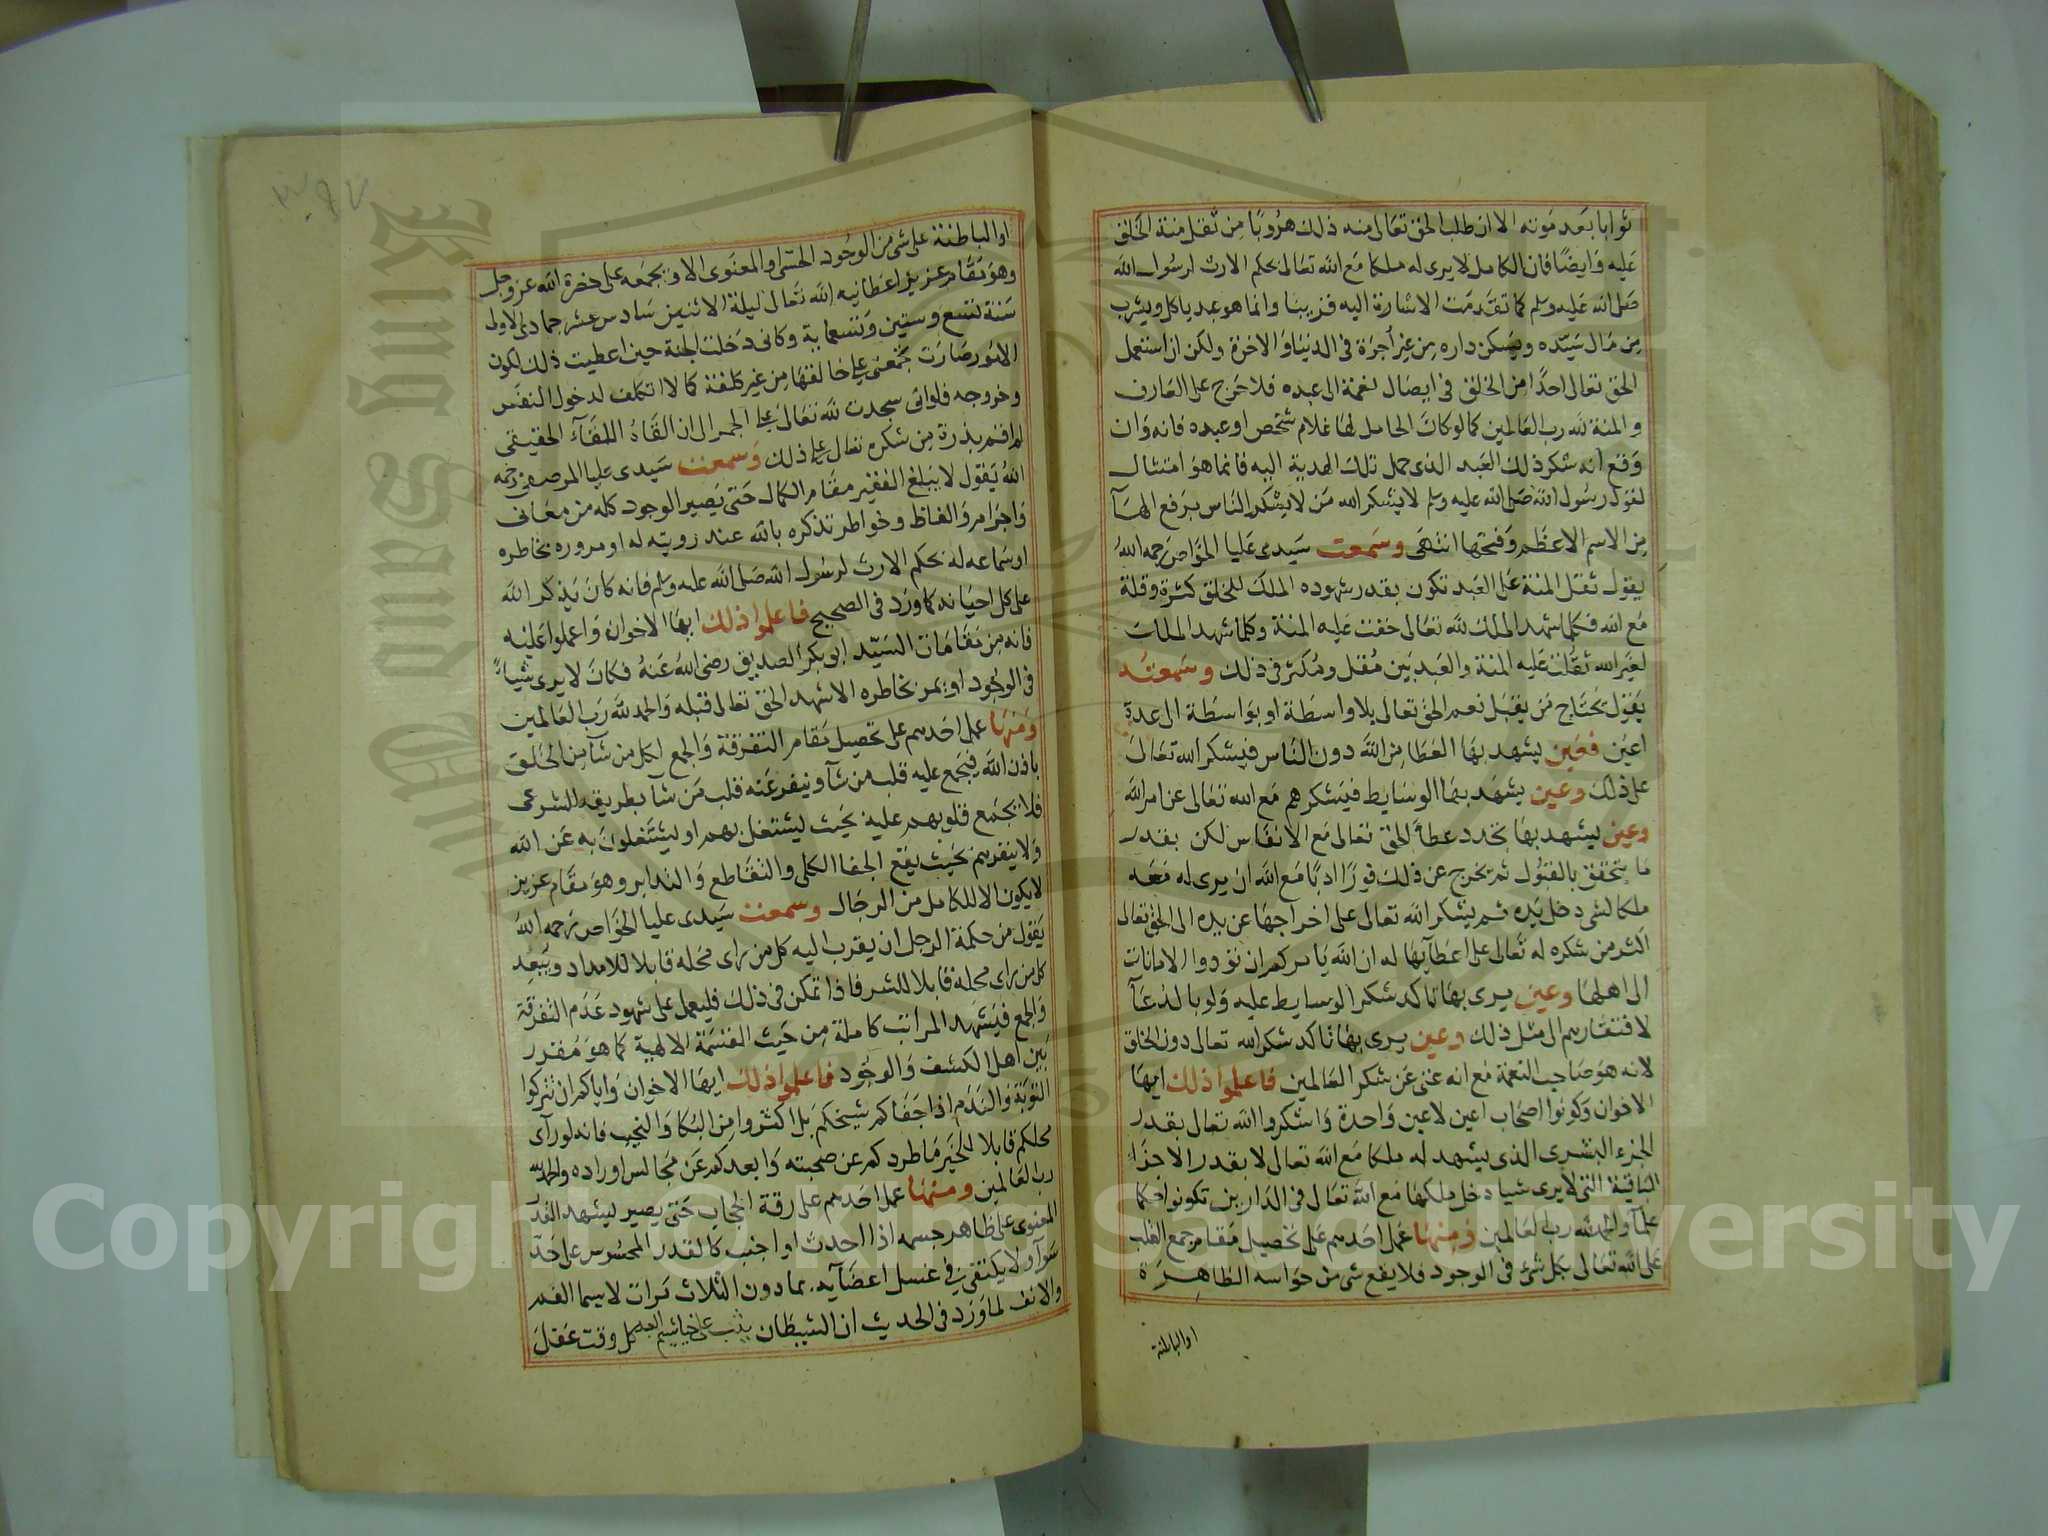 ثوابا بعد موته الا ان طلب الحق تعالى منه ذلك هروبا من ثقل منة الخلق
عليه وايضا فان الكامل لا يرى له ملكا مع الله تعالى بحكم الارث لرسول الله
صلى الله عليه وسلم كما تقدمت الاشارة اليه قريبا وانما هو عبد ياكل ويشرب
من مال سيده ويسكن داره من غير أجرة في الدنيا والاخرة ولكن ان استعمل
الحق تعالى احدا من الخلق في ايصال نعمة الى عبده فلا حرج على العارف
والمنة لله رب العالمين كما لو كان الحامل لها غلام شخص او عبده فانه وان
وقع انه شكر ذلك العبد الذى حمل تلك الهدية اليه فانما هو امتثال
لقول رسول الله صلى الله عليه وسلم لا يشكر الله من لا يشكر الناس برفع الهآ
من الاسم الاعظم وفتحها انتهى وسمعت سيدى عليا الخواص رحمه الله
يقول ثقل المنة على العبد تكون بقدر شهوده الملك للخلق كثرة وقلة
مع الله فكلما شهد الملك لله تعالى خفت عليه المنة وكلما شهد الملك
لغير الله ثقلت عليه المنة والعبد بين مقل ومكثر في ذلك وسمعته
يقول يحتاج من يقبل نعم الحق تعالى بلا واسطة او بواسطة الى عدة
اعين فعين يشهد بها العطا من الله دون الناس فيشكر الله تعالى
على ذلك وعين يشهد بها الوسايط فيشكرهم مع الله تعالى عن امر الله
وعين يشهد بها تجدد عطآ الحق تعالى مع الانفاس لكن بقدر
ما يتحقق بالقبول ثم يخرج عن ذلك فورا ادبا مع الله ان يرى له معه
ملكا لشى دخل يده ثم يشكر الله تعالى على اخراجها عن يده الى الحق تعالى
اكثر من شكره له تعالى على اعطآيها له ان الله يامركم ان تودوا الامانات
الى اهلها وعين يرى بها تاكد شكر الوسايط عليه ولو بالدعآ
لافتقارهم الى مثل ذلك وعين يرى بها تاكد شكر الله تعالى دون الخلق
لانه هو صاحب النعمة مع انه غنى عن شكر العالمين فاعلموا ذلك ايها
الاخوان وكونوا اصحاب اعين لا عين واحدة واشكروا الله تعالى بقدر
الجزء البشرى الذى يشهد له ملكا مع الله تعالى لا بقدر الاجزا
الباقية التى لا يرى شيا دخل ملكها مع الله تعالى في الدارين تكونوا حكما
علمآ والحمد لله رب العالمين ومنها عمل احدهم على تحصيل مقام جمع القلب
على الله تعالى بكل شئ في الوجود فلا يقع شى من حواسه الظاهرة
او الباطنة
او الباطنة على شى من الوجود الحسى او المعنوى الا ويجمعه على حضرة الله عز وجل
وهو مقام عزيز اعطانيه الله تعالى ليلة الاثنين سادس عشر جمادى الاولى
سنة تسع وستين وتسعماية وكانى دخلت الجنة حين اعطيت ذلك لكون
الامور صارت تجمعنى على خالقها من غير كلفة كما لا اتكلف لدخول النفس
وخروجه فلو انى سجدت لله تعالى على الجمر الى ان القاه اللقآء الحقيقى
لم اقم بذرة من شكره تعالى على ذلك وسمعت سيدى عليا المرصفى رحمه
الله يقول لا يبلغ الفقير مقام الكمال حتى يصير الوجود كله من معانى
واجرام والفاظ وخواطر تذكره بالله عند رويته له او مروره بخاطره
او سماعه له بحكم الارث لرسول الله صلى الله عليه وسلم فانه كان يذكر الله
على كل احيانه كما ورد في الصحيح فاعلموا ذلك ايها الاخوان واعملوا عليه
فانه من مقامات السيد ابى بكر الصديق رضى الله عنه فكان لا يرى شيا
في الوجود او يمر بخاطره الا شهد الحق تعالى قبله والحمد لله رب العالمين
ومنها عمل احدهم على تحصيل مقام التفرقة والجمع لكل من شآ من الخلق
باذن الله فيجمع عليه قلب من شآ وينفر عنه قلب من شآ بطريقه الشرعى
فلا تجتمع قلوبهم عليه بحيث يشتغل بهم او يشتغلون به عن الله
ولا ينفرهم بحيث يقع الجفا الكلى والتقاطع والتدابر وهو مقام عزيز
لا يكون الا للكامل من الرجال وسمعت سيدى عليا الخواص رحمه الله
يقول من حكمة الرجل ان يقرب اليه كل من راى محله قابلا للامداد ويبعد
كل من راى محله قابلا للشر فاذا تمكن في ذلك فليعمل على شهود عدم التفرقة
والجمع فيشهد المراتب كاملة من حيث القسمة الالهية كما هو مقرر
بين اهل الكشف والوجود فاعلموا ذلك ايها الاخوان واياكم ان تتركوا
التوبة والندم اذا جفاكم شيخكم بل اكثروا من البكا والنحيب فانه لو رآى
محلكم قابلا للخير ما طردكم عن صحبته وابعدكم عن مجالس اوراده والحمد لله
رب العالمين ومنها عمل احدهم على رقة الحجاب حتى يصير يشهد القذر
المعنوى على ظاهر جسمه اذا احدث او اجنب كالقذر المحسوس على حد
سوآ ولا يكتفى في غسل اعضآيه بما دون الثلاث مرات لا سيما الفم
والانف لما ورد في الحديث ان الشيطان يبيت على خياشيم العبد كل وقت عقل
Copyright © King Saud University
King Saud University